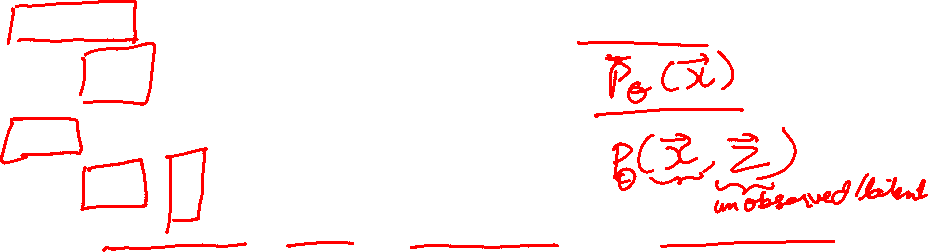 P_θ(x⃗)
P_θ(x⃗, z⃗)
unobserved/latent